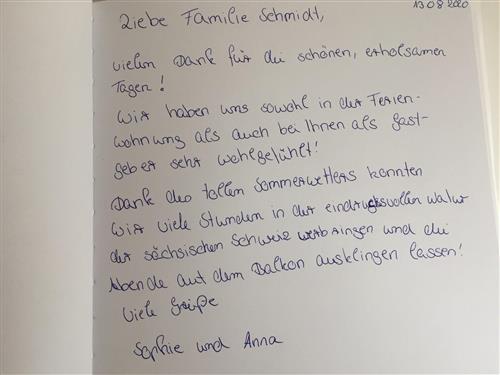 13 08 2020
Liebe Familie Schmidt,
vielen Dank für die schönen, erholsamen
Tagen!
Wir haben uns sowohl in der Ferien-
wohnung als auch bei Ihnen als Gast-
geber sehr wohlgefühlt!
Dank des tollen Sommerwetters konnten
wir viele Stunden in der eindrucksvollen Natur
der sächsischen Schweiz verbringen und die
Abende auf dem Balkon ausklingen lassen!
Viele Grüße
Sophie und Anna